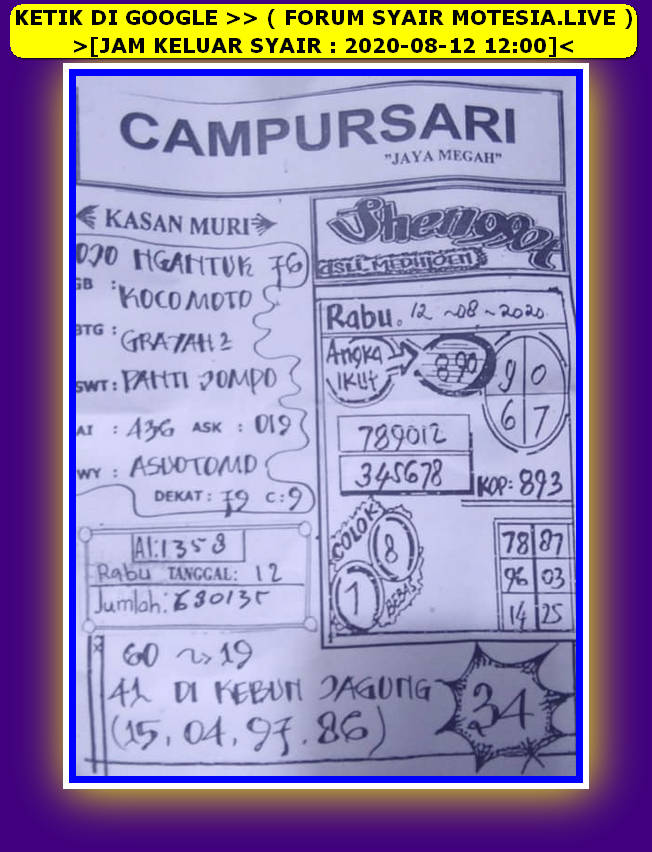 KETIK DI GOOGLE >> ( FORUM SYAIR MOTESIA.LIVE )
>[JAM KELUAR SYAIR : 2020-08-12 12:00]<
CAMPURSARI
"JAYA MEGAH"
KASAN MURI
NGANTUK 76
GB : KOCOMOTO
BTG :
SWT : PANTI JOMPO
AI : 436 ASK : 019
WY :
DEKAT : 79 C : 9
AI: 1358
Rabu TANGGAL: 12
Jumlah: 680135
Shengpot
ASLI MEDIJOEN
Rabu. 12 ~08 ~2020
Angka IKUT
890
9 0
6 7
789012
345678
KOP: 893
COLOK
8
1
BEBAS
78 87
96 03
14 25
60 ~> 19
41 DI KEBUN JAGUNG
(15, 04, 97, 86)
34